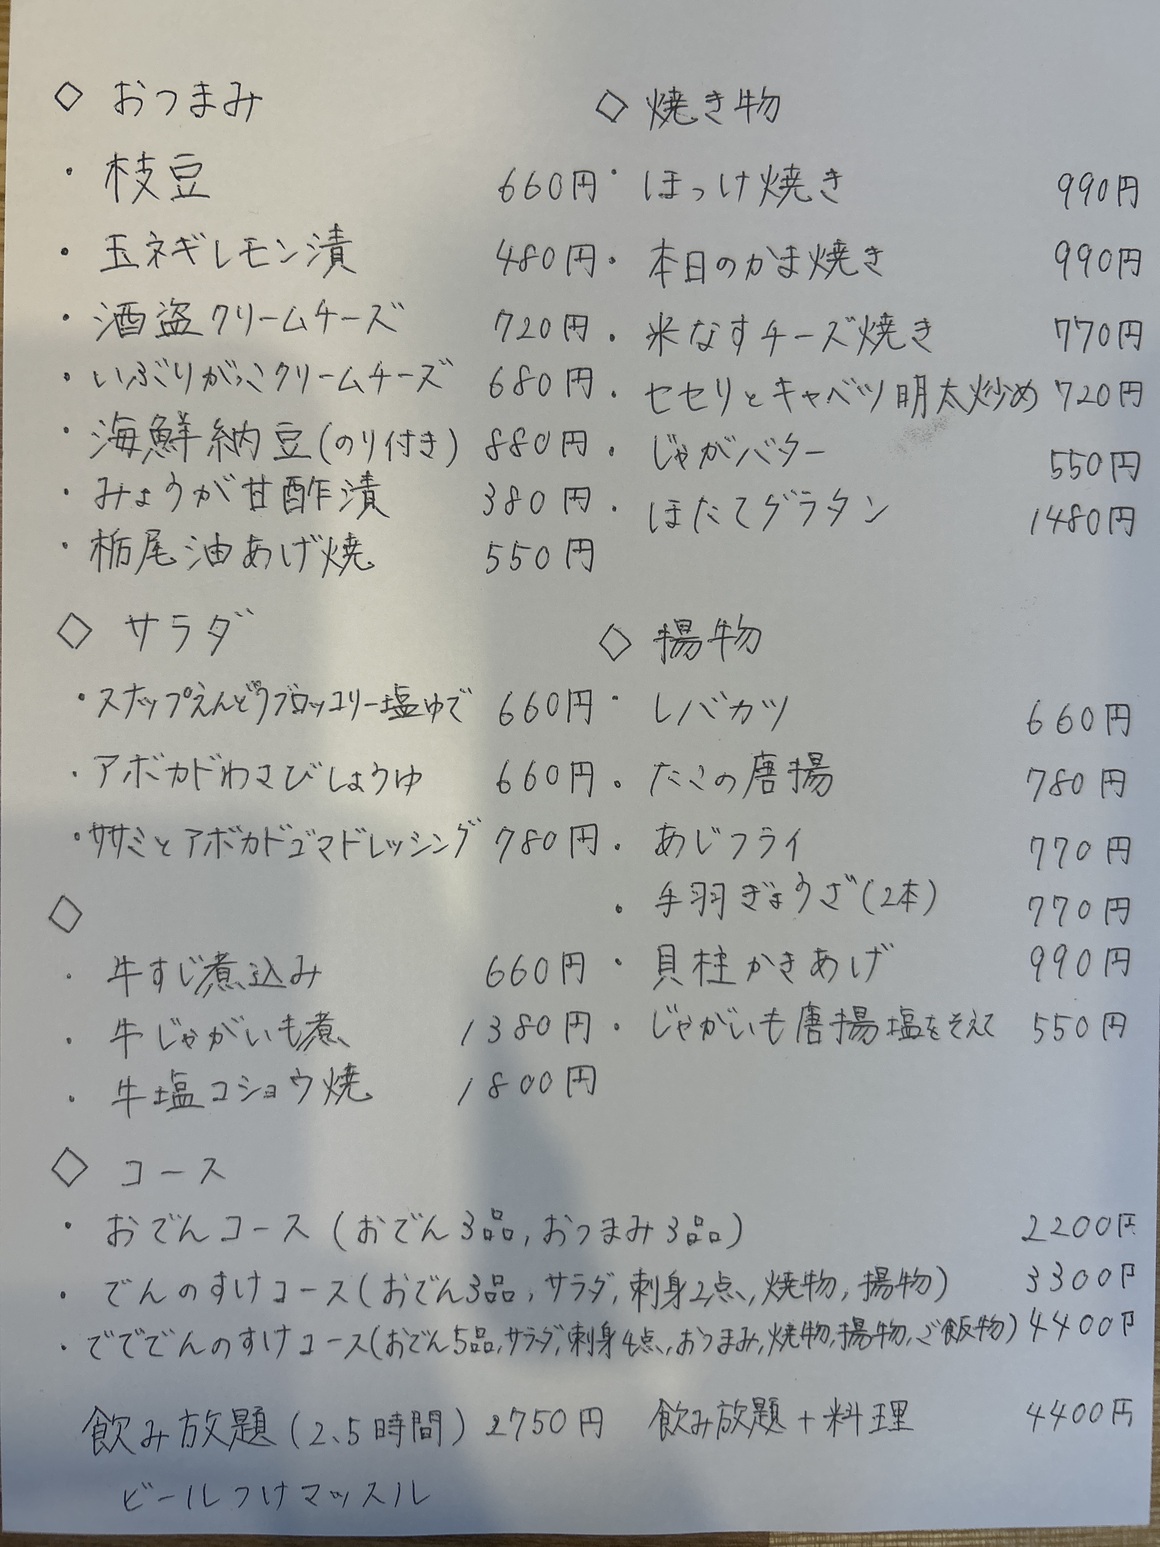 ◇ おつまみ
・枝豆 660円
・玉ネギレモン漬 480円
・酒盗クリームチーズ 720円
・いぶりがっこクリームチーズ 680円
・海鮮納豆(のり付き) 880円
・みょうが甘酢漬 380円
・栃尾油あげ焼 550円
◇ サラダ
・スナップえんどうブロッコリー塩ゆで 660円
・アボカドわさびしょうゆ 660円
・ササミとアボカドゴマドレッシング 780円
◇
・牛すじ煮込み 660円
・牛じゃがいも煮 1380円
・牛塩コショウ焼 1800円
◇ 焼き物
・ほっけ焼き 990円
・本日のかま焼き 990円
・米なすチーズ焼き 770円
・セセリとキャベツ明太炒め 720円
・じゃがバター 550円
・ほたてグラタン 1480円
◇ 揚物
・レバカツ 660円
・たこの唐揚 780円
・あじフライ 770円
・手羽ぎょうざ(2本) 770円
・貝柱かきあげ 990円
・じゃがいも唐揚塩をそえて 550円
◇ コース
・おでんコース(おでん3品,おつまみ3品) 2200円
・でんのすけコース(おでん3品,サラダ,刺身2点,焼物,揚物) 3300円
・でででんのすけコース(おでん5品,サラダ,刺身4点,おつまみ,焼物,揚物,ご飯物) 4400円
飲み放題(2.5時間) 2750円 飲み放題+料理 4400円
ビールつけマッスル